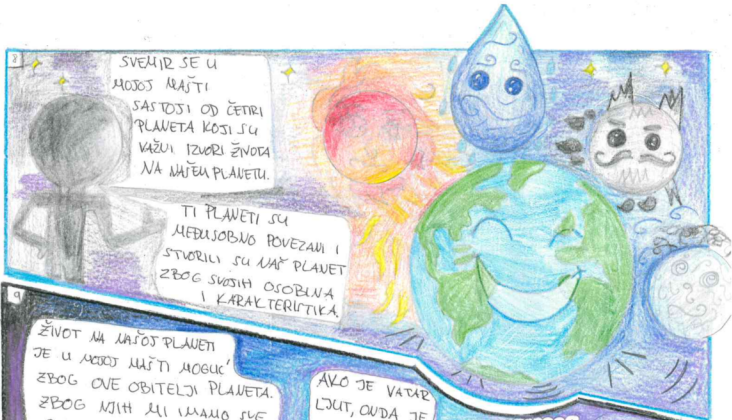 8
SVEMIR SE U
MOJOJ MAŠTI
SASTOJI OD ČETIRI
PLANETA KOJI SU
VAŽNI IZVORI ŽIVOTA
NA NAŠEM PLANETU.
TI PLANETI SU
MEĐUSOBNO POVEZANI I
STVORILI SU NAŠ PLANET
ZBOG SVOJIH OSOBINA
I KARAKTERISTIKA.
9
ŽIVOT NA NAŠOJ PLANETI
JE U MOJOJ MAŠTI MOGUĆ
ZBOG OVE OBITELJI PLANETA.
ZBOG NJIH MI IMAMO SVE
AKO JE VATAR
LJUT, ONDA JE